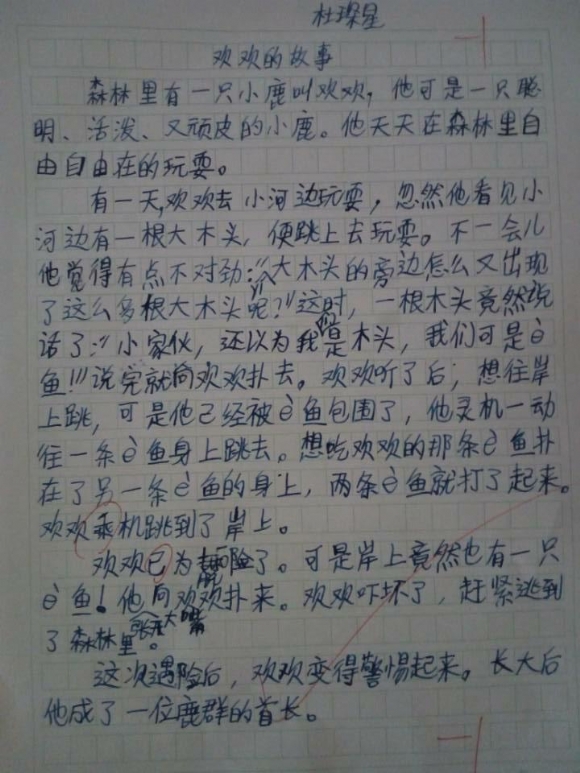 杜琛星
欢欢的故事
森林里有一只小鹿叫欢欢，他可是一只聪
明、活泼、又顽皮的小鹿。他天天在森林里自
由自由在的玩耍。
有一天,欢欢去小河边玩耍，忽然他看见小
河边有一根大木头，便跳上去玩耍。不一会儿
他觉得有点不对劲:“大木头的旁边怎么又出现
了这么多根大木头呢?”这时，一根木头竟然说
话了:“小家伙，还以为我们是木头，我们可是è
鱼!”说完就向欢欢扑去。欢欢听了后，想往岸
上跳，可是他己经被è鱼包围了，他灵机一动
往一条è鱼身上跳去。想吃欢欢的那条è鱼扑
在了另一条è鱼的身上，两条è鱼就打了起来。
欢欢乘机跳到了岸上。
欢欢已为脱险了。可是岸上竟然也有一只
è鱼！他张开大嘴向欢欢扑来。欢欢吓坏了，赶紧逃到
了森林里。
这次遇险后，欢欢变得警惕起来。长大后
他成了一位鹿群的首长。